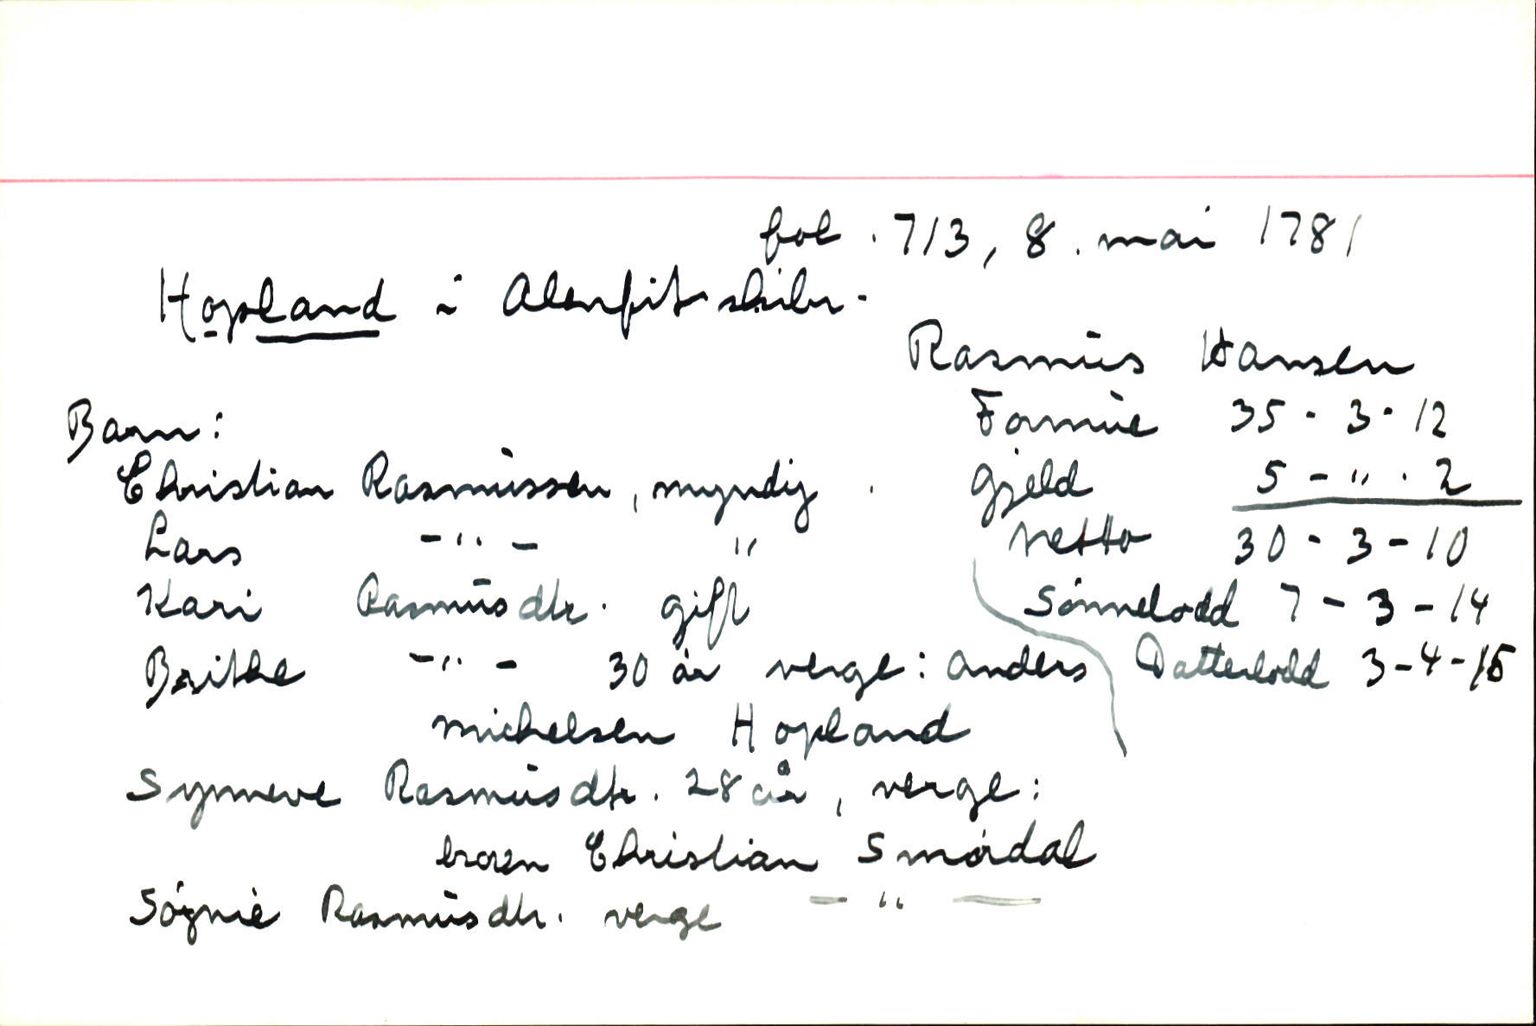 fol. 713, 8. mai 1781
Hopland i Alenfit skibr.
Rasmus Hansen
Formue 35 - 3 - 12
Gjeld 5 - " - 2
Netto 30 - 3 - 10
Sønnelodd 7 - 3 - 14
Datterlodd 3 - 4 - 15
Barn:
Christian Rasmussen, myndig.
Lars - " - "
Kari Rasmusdtr. gift
Brithe - " - 30 år verge: Anders
Michelsen Hopland
Synneve Rasmusdtr. 28 år, verge:
broren Christian Smørdal
Søgnie Rasmusdtr. verge - " -